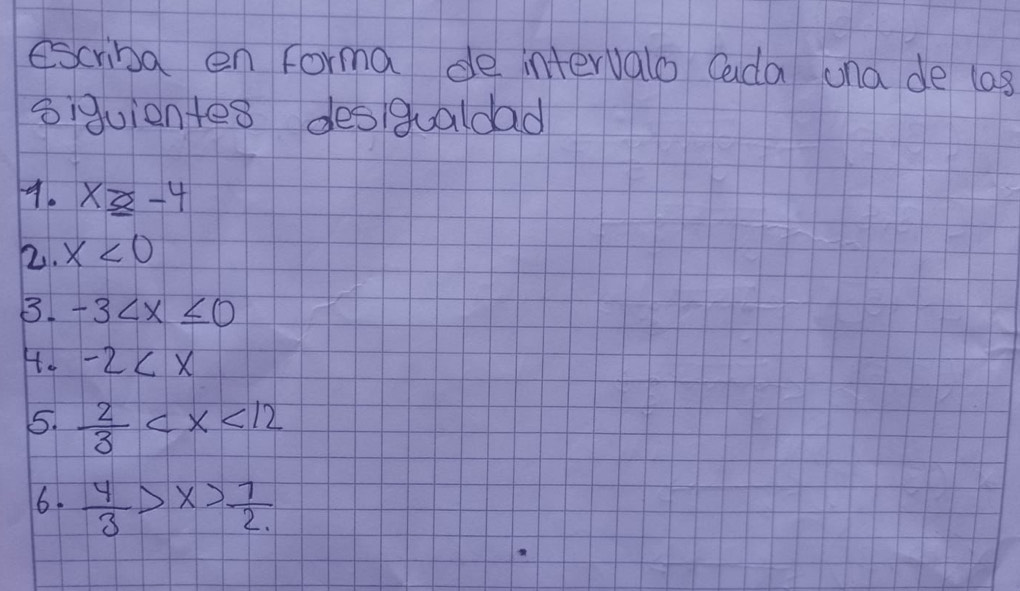 Escriba en forma de intervalo cada una de las
siguientes desigualdad
1. x ≥ -4
2. x < 0
3. -3 < x ≤ 0
4. -2 < x
5. 2/3 < x < 12
6. 4/3 > x > 1/2.